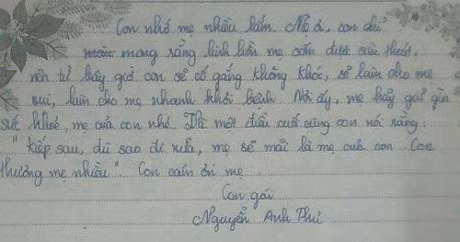 Con nhớ mẹ nhiều lắm. Mẹ ơi, con chỉ
mong rằng linh hồn mẹ sớm được siêu thoát,
nên từ bây giờ con sẽ cố gắng không khóc, sẽ làm cho mẹ
vui, làm cho mẹ nhanh khỏi bệnh. Nơi ấy, mẹ hãy giữ gìn
sức khoẻ, mẹ của con nhé. Và một điều cuối cùng con nói rằng:
"kiếp sau, dù sao đi nữa, mẹ sẽ mãi là mẹ của con. Con
thương mẹ nhiều". Con cảm ơn mẹ.
Con gái
Nguyễn Anh Thư